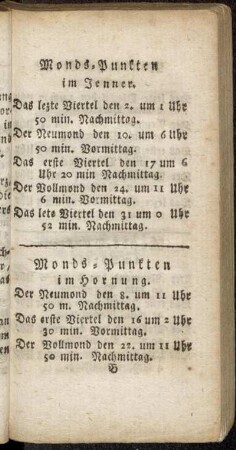 Monds-Punkten
im Jenner.
Das lezte Viertel den 2. um 1 Uhr
50 min. Nachmittag.
Der Neumond den 10. um 6 Uhr
50 min. Vormittag.
Das erste Viertel den 17 um 6
Uhr 20 min Nachmittag.
Der Vollmond den 24. um 11 Uhr
6 min. Vormittag.
Das lets Viertel den 31 um 0 Uhr
52 min. Nachmittag.
Monds-Punkten
im Hornung.
Der Neumond den 8. um 11 Uhr
50 m. Nachmittag.
Das erste Viertel den 16 um 2 Uhr
30 min. Vormittag.
Der Vollmond den 22. um 11 Uhr
50 min. Nachmittag.
G